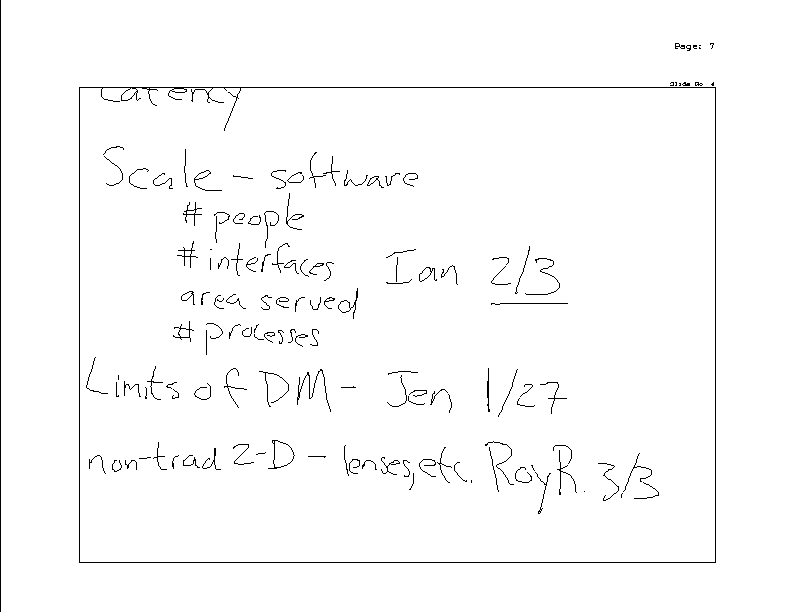 Page: 7
Slide No 4
Latency
Scale - software
# people
# interfaces Ian 2/3
area served
# processes
Limits of DM - Jen 1/27
non-trad 2-D - lenses, etc. Roy R. 3/3